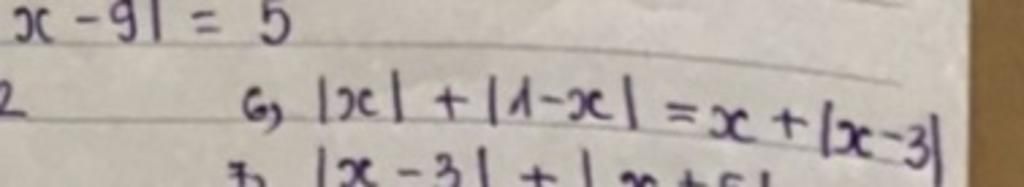 x - 9| = 5
2 6, |x| + |1-x| = x + |x-3|
7, |x - 3| + |